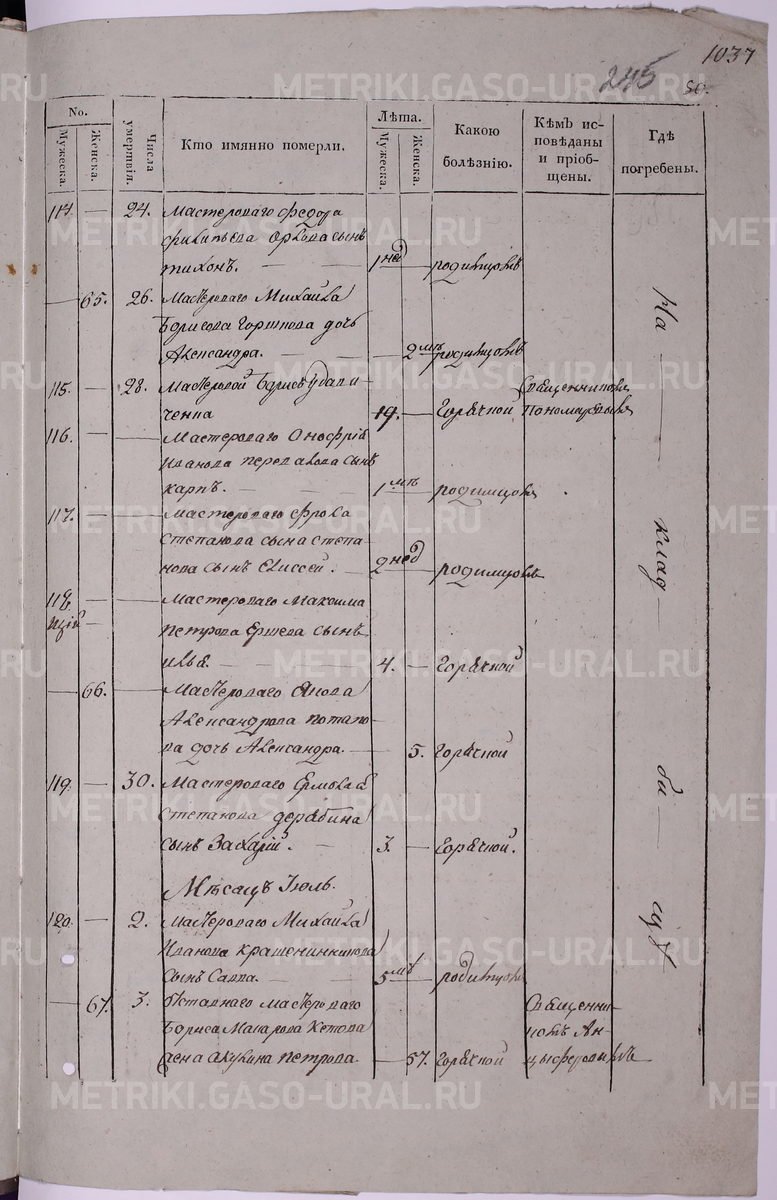 1037
245
50.
No. Лѣта.
Мужеска. Женска. Числа умертвія. Кто имянно померли. Мужеска. Женска. Какою болѣзнію. Кѣмъ исповѣданы и пріобщены. Гдѣ погребены.
114. — 24. Мастероваго Федора
Филипьева Орлова сынъ
Тихонъ. — 1 нед — родимцомъ
— 65. 26. Мастероваго Михаила
Борисова дочь
Александра. — 2 мѣ родимцомъ
115. — 28. Мастеровой Борисъ
19. — Горячкой Священникомъ Пономаревымъ
116. — — Мастероваго Онофрія
Иванова сынъ
Карпъ. — 1 мѣ — родимцомъ
117. — — Мастероваго Фрола
Степанова сына Степа-
нова сынъ Елисей. — 2 нед — родимцомъ
118. — — Мастероваго Максима
Петрова Ершева сынъ
Илья. — 4. — Горячкой
— 66. — Мастероваго
Александрова Потапо-
ва дочь Александра. — 5. Горячкой
119. — 30. Мастероваго Ермолая
Степанова Дерябина
сынъ Захарій. — 3. — Горячкой.
Мѣсяцъ Іюль.
120. — 2. Мастероваго Михаила
Иванова Крашенинникова
сынъ Савва. — 5 мѣ — родимцомъ
— 67. 3. Отставнаго мастероваго
Бориса Макарова Кетова
жена Акулина Петрова. — 57. Горячкой Священни-
комъ Ан-
цыферовымъ
На — клад — би — щѣ
METRIKI.GASO-URAL.RU